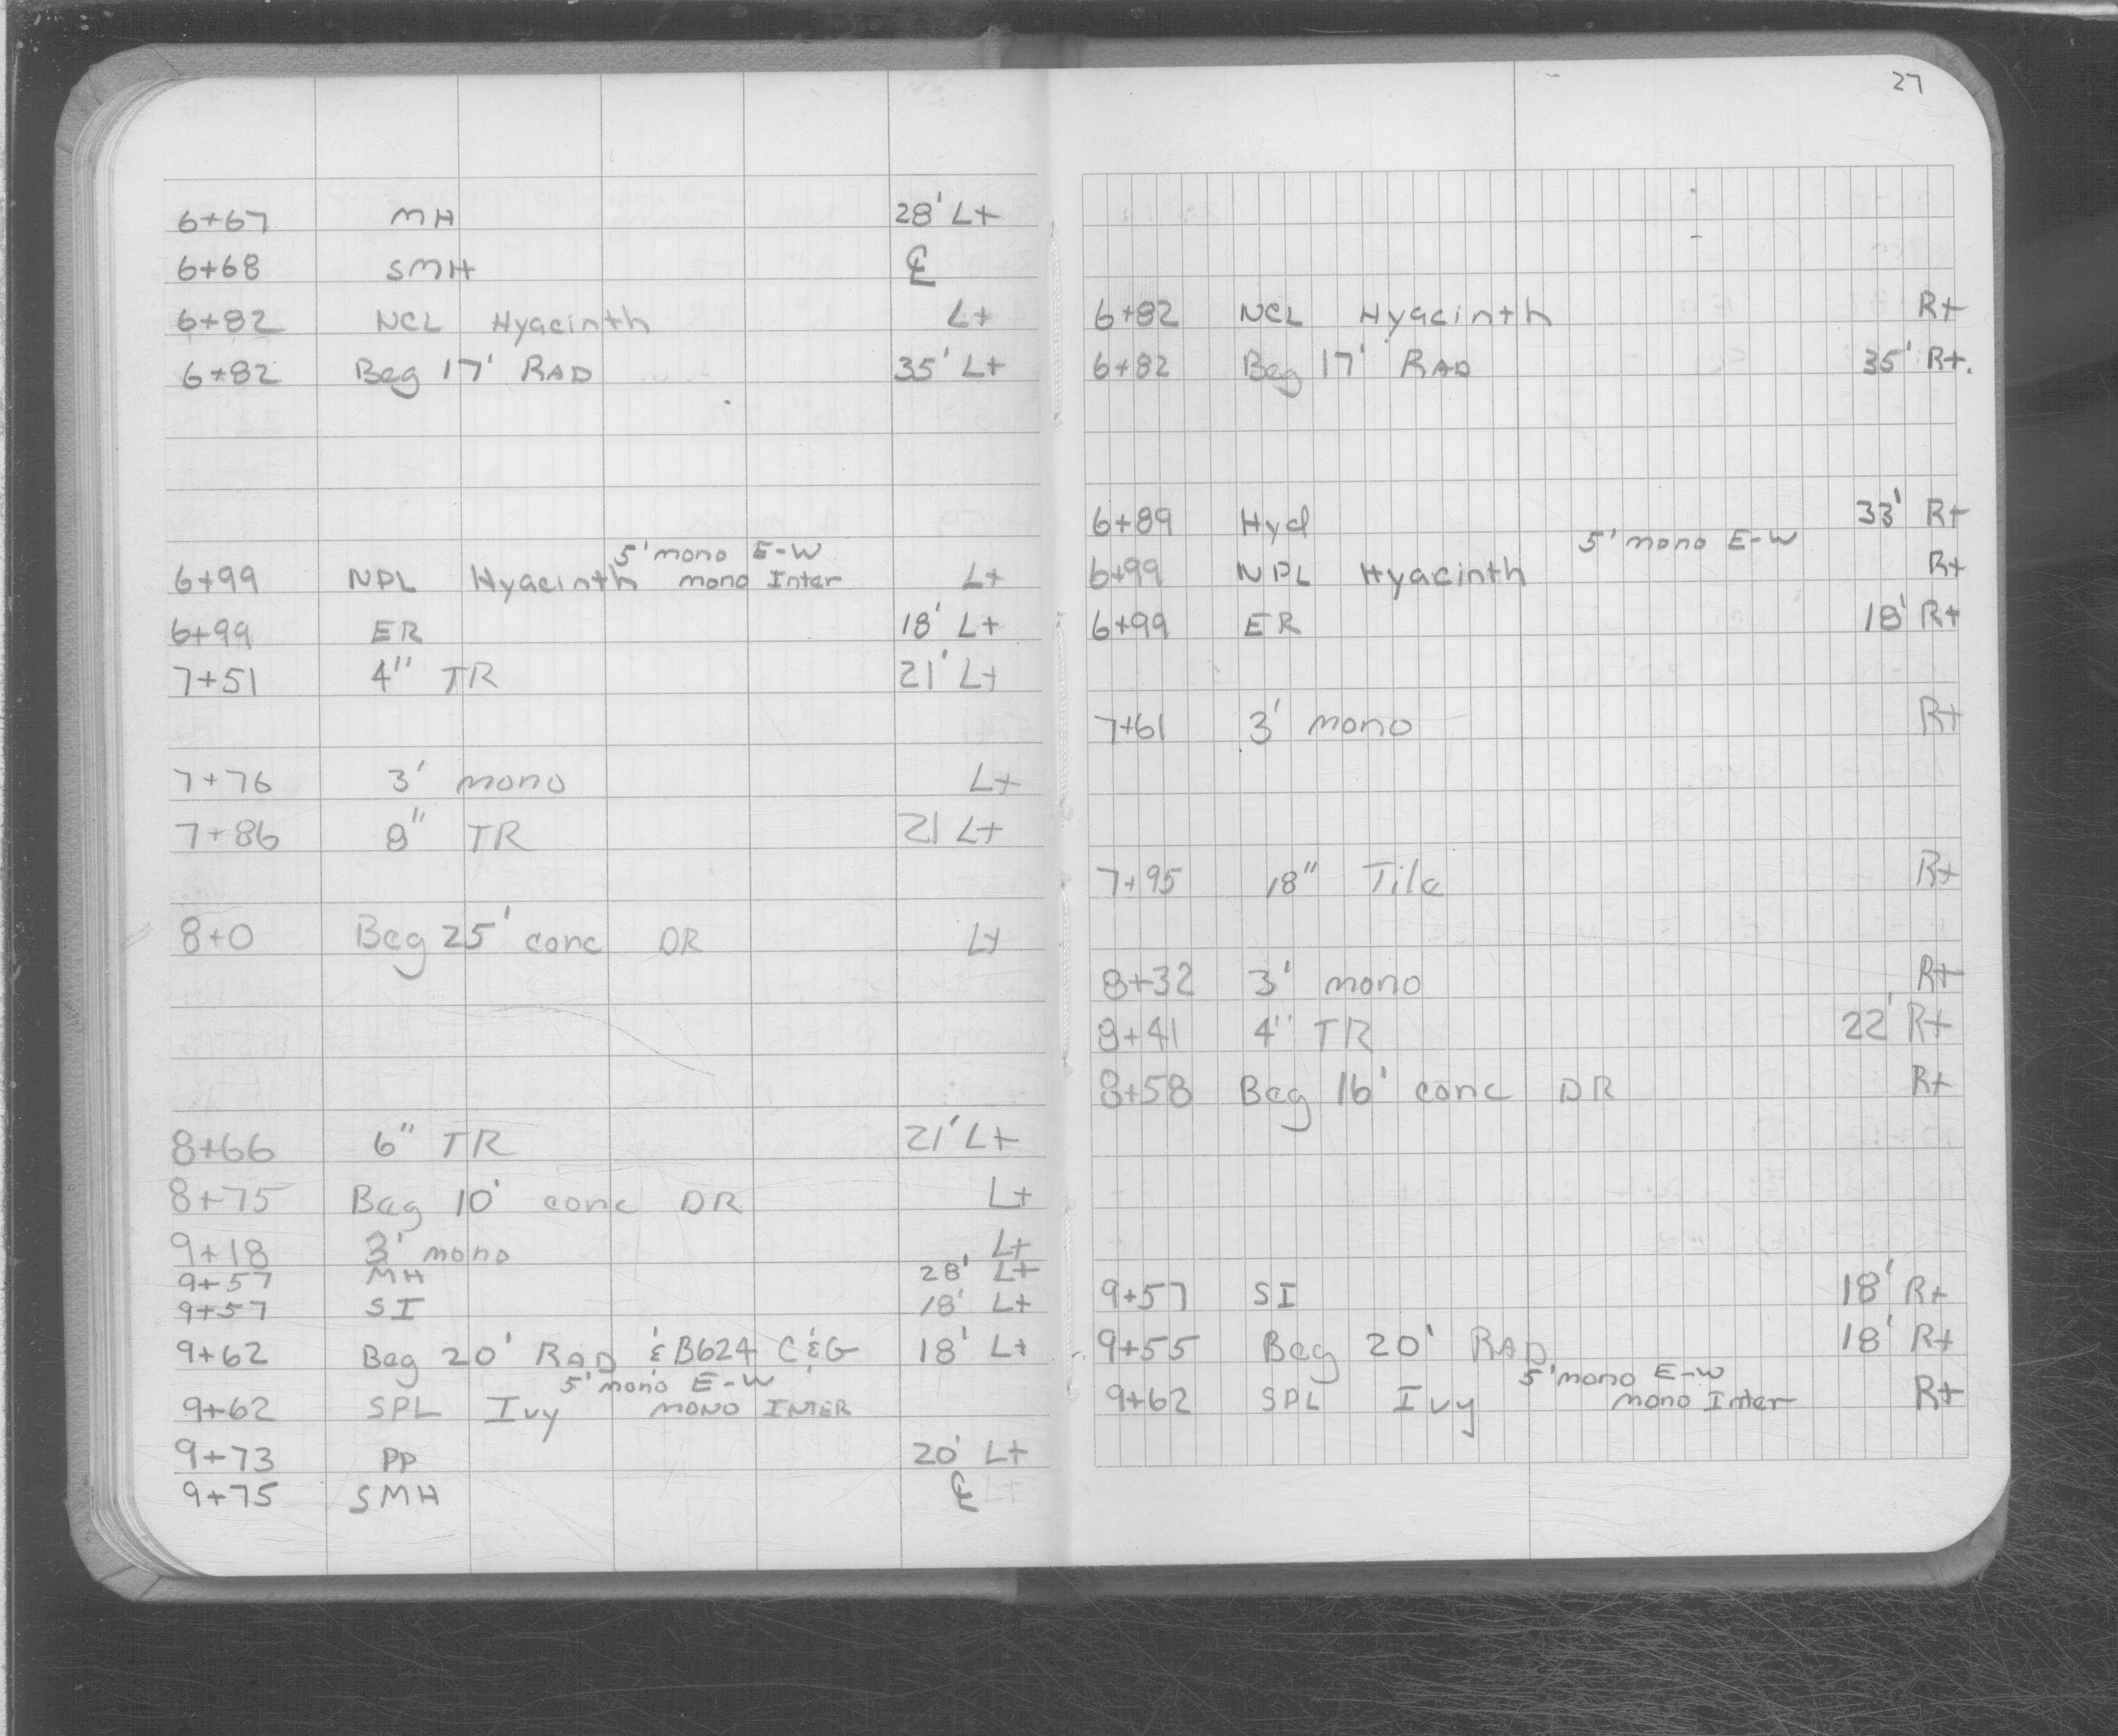 6+67 MH 28' Lt
6+68 SMH ℄
6+82 NCL Hyacinth Lt
6+82 Beg 17' RAD 35' Lt
5' mono E-W
6+99 NPL Hyacinth mono Inter Lt
6+99 ER 18' Lt
7+51 4" TR 21' Lt
7+76 3' mono Lt
7+86 8" TR 21 Lt
8+0 Beg 25' conc DR Lt
8+66 6" TR 21' Lt
8+75 Beg 10' conc DR Lt
9+18 3' mono Lt
9+57 MH 28' Lt
9+57 SI 18' Lt
9+62 Beg 20' RAD & B624 C&G 18' Lt
5' mono E-W
9+62 SPL Ivy MONO INTER
9+73 PP 20' Lt
9+75 SMH ℄ Lt
27
6+82 NCL Hyacinth Rt
6+82 Beg 17' RAD 35' Rt.
6+89 Hyd 33' Rt
5' mono E-W
6+99 NPL Hyacinth Rt
6+99 ER 18' Rt
7+61 3' mono Rt
7+95 18" Tile Rt
8+32 3' mono Rt
8+41 4" TR 22' Rt
8+58 Beg 16' conc DR Rt
9+57 SI 18' Rt
9+55 Beg 20' RAD 18' Rt
5' mono E-W
9+62 SPL Ivy mono Inter Rt